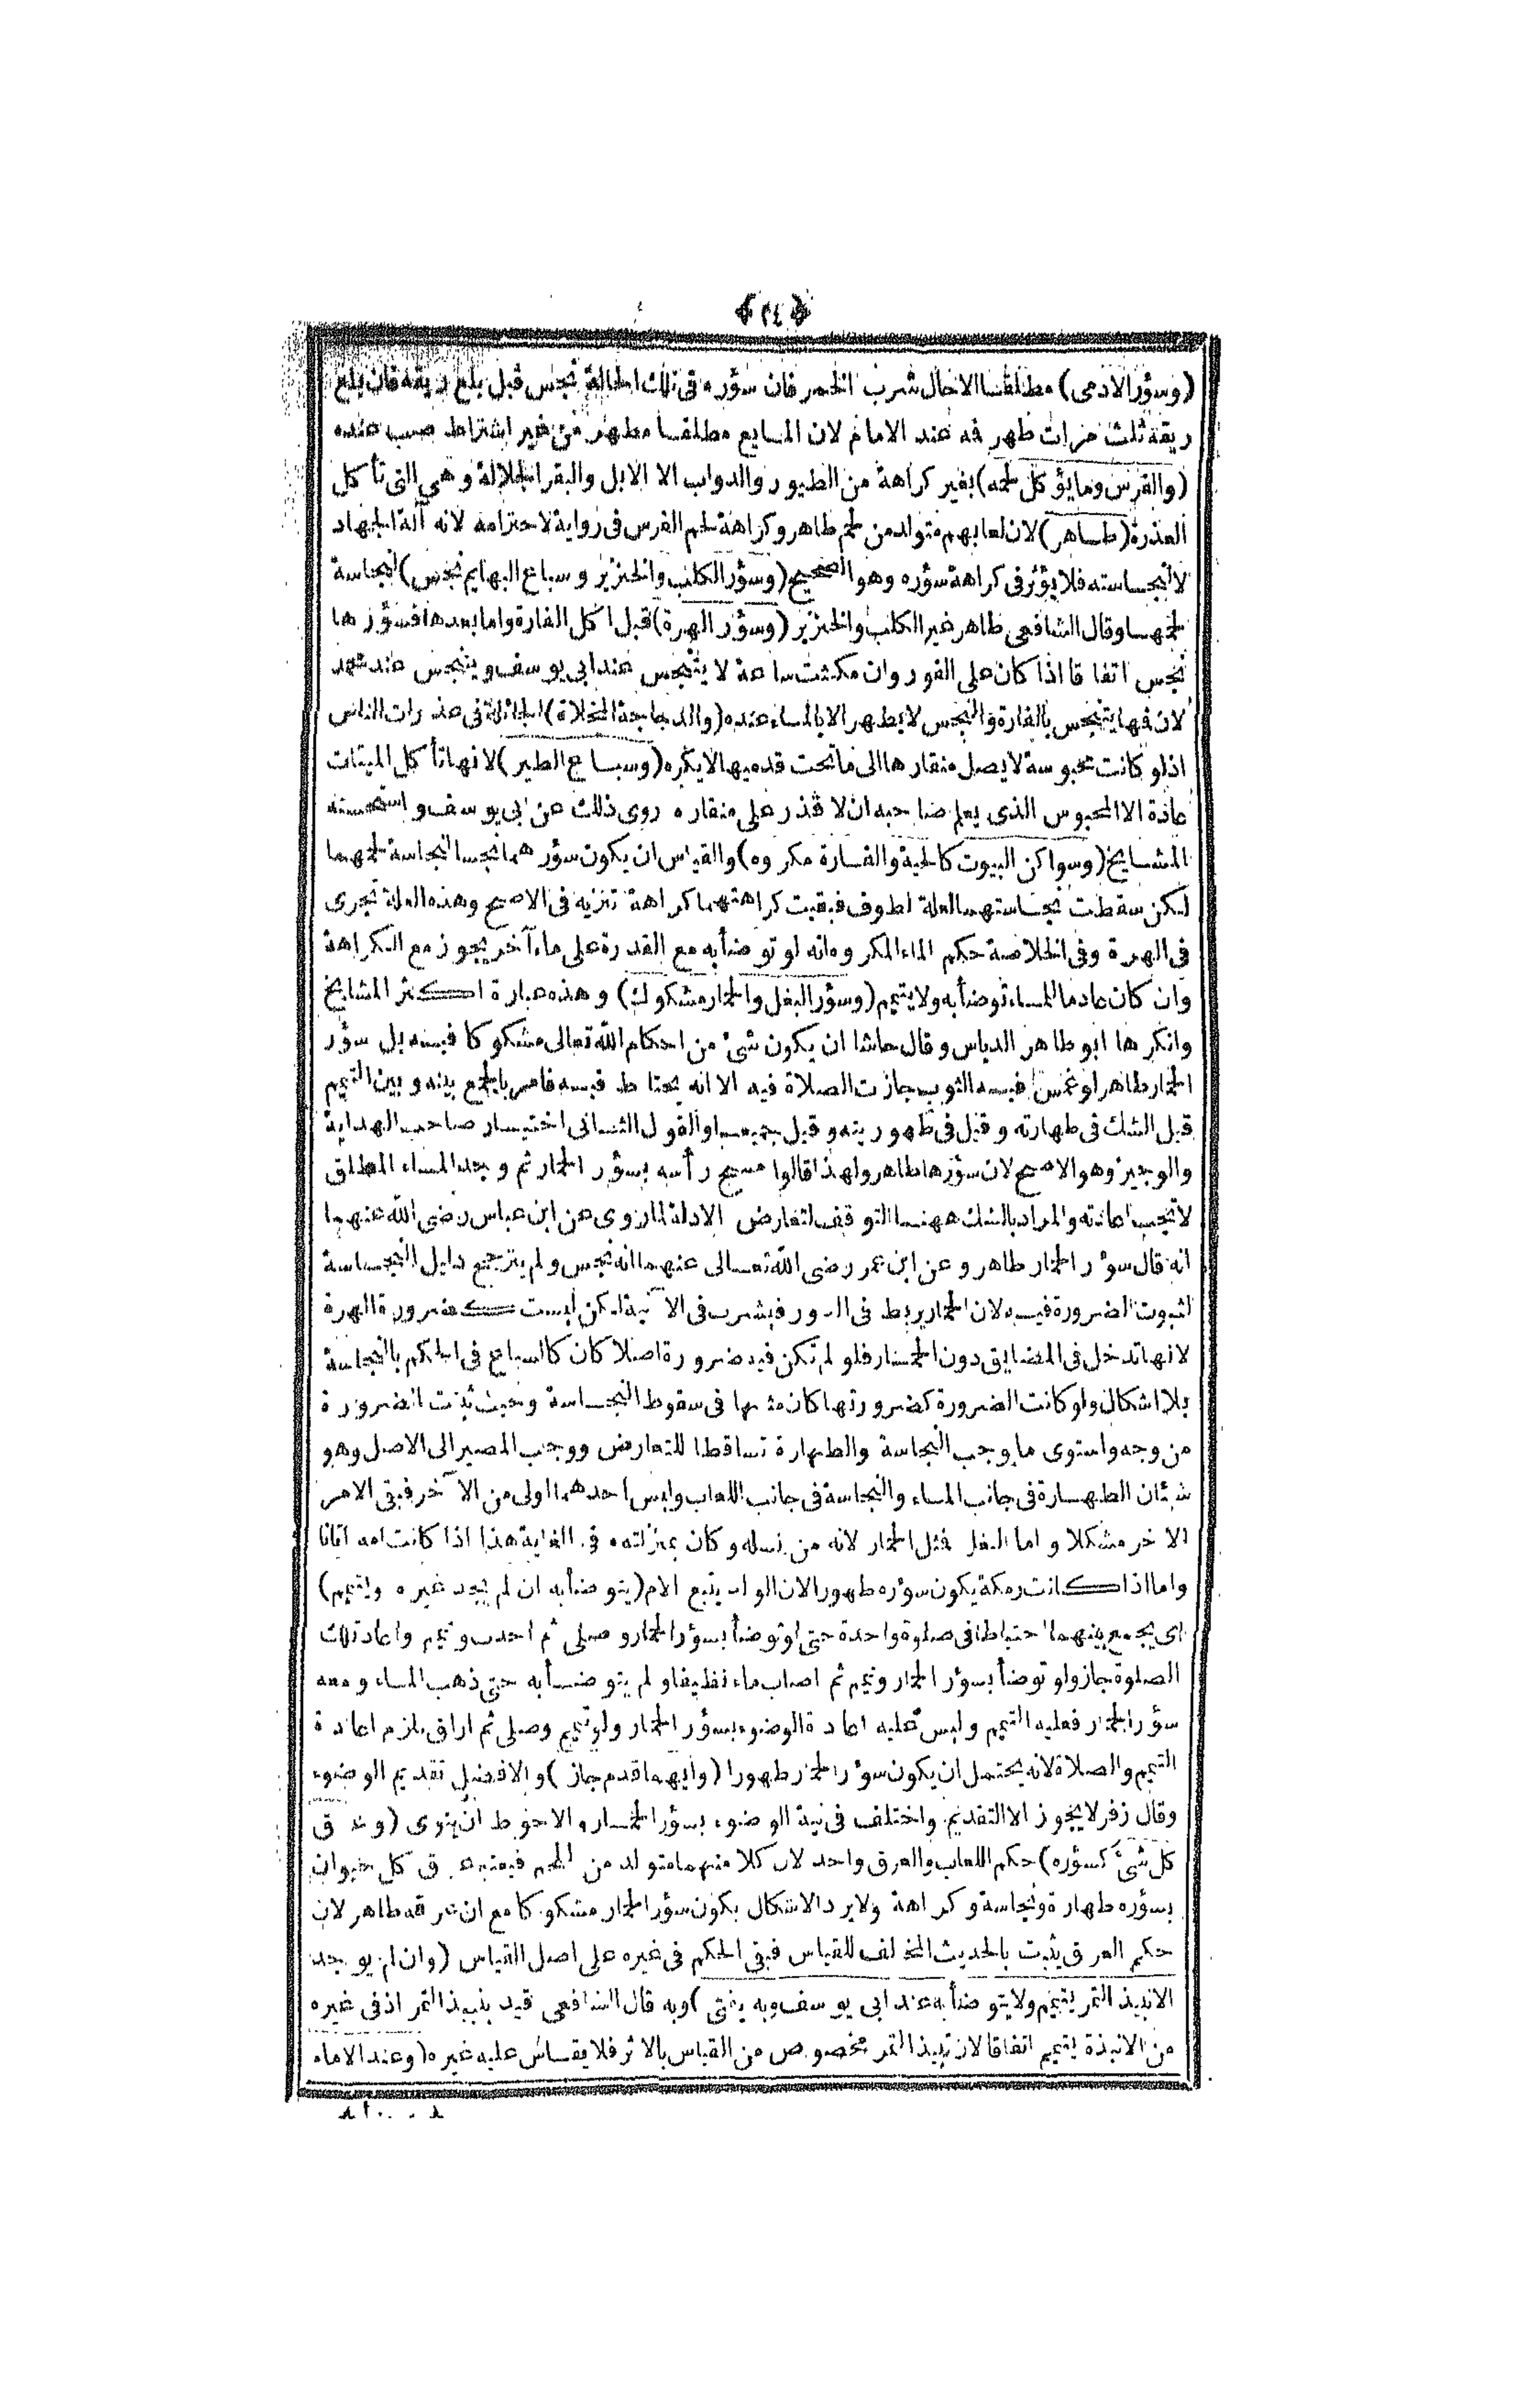 ﴿ ٣٤ ﴾
(وسؤر الادمى) مطلقا الا حال شرب الخمر فان سؤره فى تلك الحالة نجس قبل بلع ريقه فان بلع
ريقه ثلث مرات طهر فه عند الامام لان المايع مطلقا مطهر من غير اشتراط صب عنده
(والفرس وما يؤكل لحمه) بغير كراهة من الطيور والدواب الا الابل والبقر الجلالة وهى التى تأكل
العذرة (طاهر) لان لعابهم متولد من لحم طاهر وكراهة لحم الفرس فى رواية لاحترامه لانه آلة الجهاد
لا لنجاسته فلا يؤثر فى كراهة سؤره وهو الصحيح (وسؤر الكلب والخنزير وسباع البهايم نجس) لنجاسة
لحمها وقال الشافعى طاهر غير الكلب والخنزير (وسؤر الهرة) قبل اكل الفارة واما بعدها فسؤرها
نجس اتفاقا اذا كان على الفور وان مكثت ساعة لا يتنجس عند ابى يوسف وينجس عند محمد
لان فها يتنجس بالفارة والنجس لا يطهر الا بالماء عنده (والدجاجة المخلاة) الجائلة فى عذرات الناس
اذ لو كانت محبوسة لا يصل منقارها الى ما تحت قدميها لا يكره (وسباع الطير) لانها تأكل الميتات
عادة الا المحبوس الذى يعلم صاحبه ان لا قذر على منقاره روى ذلك عن ابى يوسف واستحسنه
المشايخ (وسواكن البيوت كالحية والفارة مكروه) والقياس ان يكون سؤرهما نجسا لنجاسة لحمهما
لكن سقطت نجاستهما لعلة الطوف فبقيت كراهتهما كراهة تنزيه فى الاصح وهذه العلة تجرى
فى الهرة وفى الخلاصة حكم الماء المكروه انه لو توضأ به مع القدرة على ماء آخر يجوز مع الكراهة
وان كان عادما للماء توضأ به ولا يتيمم (وسؤر البغل والحمار مشكوك) وهذه عبارة اكثر المشايخ
وانكرها ابو طاهر الدباس وقال حاشا ان يكون شئ من احكام الله تعالى مشكوكا فيه بل سؤر
الحمار طاهر لو غمس فيه الثوب جازت الصلاة فيه الا انه يحتاط فيه فامر بالجمع بينه وبين التيمم
قيل الشك فى طهارته وقيل فى طهوريته وقيل بجميعها والقول الثانى اختيار صاحب الهداية
والوجيز وهو الاصح لان سؤرها طاهر ولهذا قالوا مسح رأسه بسؤر الحمار ثم وجد الماء المطلق
لا تجب اعادته والمراد بالشك ههنا التوقف لتعارض الادلة لما روى عن ابن عباس رضى الله عنهما
انه قال سؤر الحمار طاهر وعن ابن عمر رضى الله تعالى عنهما انه نجس ولم يترجح دليل النجاسة
لثبوت الضرورة فيه لان الحمار يربط فى الدور فيشرب فى الآنية لكن ليست كضرورة الهرة
لانها تدخل فى المضايق دون الحمار فلو لم تكن فيه ضرورة اصلا كان كالسباع فى الحكم بالنجاسة
بلا اشكال ولو كانت الضرورة كضرورتها كان مثلها فى سقوط النجاسة وحيث ثبتت الضرورة
من وجه واستوى ما يوجب النجاسة والطهارة تساقطا للتعارض ووجب المصير الى الاصل وهو
شيئان الطهارة فى جانب الماء والنجاسة فى جانب اللعاب وليس احدهما اولى من الآخر فبقى الامر
الاخر مشكلا واما البغل فمثل الحمار لانه من نسله وكان بمنزلته فى الغاية هذا اذا كانت امه اتانا
واما اذا كانت رمكة يكون سؤره طهورا لان الولد يتبع الام (يتوضأ به ان لم يجد غيره ويتيمم)
اى يجمع بينهما احتياطا فى صلوة واحدة حتى لو توضأ بسؤر الحمار وصلى ثم احدث وتيمم واعاد تلك
الصلوة جاز ولو توضأ بسؤر الحمار وتيمم ثم اصاب ماء نظيفا ولم يتوضأ به حتى ذهب الماء ومعه
سؤر الحمار فعليه التيمم وليس عليه اعادة الوضوء بسؤر الحمار ولو تيمم وصلى ثم اراق يلزم اعادة
التيمم والصلاة لانه يحتمل ان يكون سؤر الحمار طهورا (وايهما قدم جاز) والافضل تقديم الوضوء
وقال زفر لا يجوز الا التقديم واختلف فى نية الوضوء بسؤر الحمار والاحوط ان ينوى (وعرق
كل شئ كسؤره) حكم اللعاب والعرق واحد لان كلا منهما متولد من اللحم فيعتبر عرق كل حيوان
بسؤره طهارة ونجاسة وكراهة ولا يرد الاشكال بكون سؤر الحمار مشكوكا مع ان عرقه طاهر لان
حكم العرق يثبت بالحديث المخالف للقياس فبقى الحكم فى غيره على اصل القياس (وان لم يوجد
الا نبيذ التمر يتيمم ولا يتوضأ به عند ابى يوسف وبه يفتى) وبه قال الشافعى قيد بنبيذ التمر اذ فى غيره
من الانبذة يتيمم اتفاقا لان نبيذ التمر مخصوص من القياس بالاثر فلا يقاس عليه غيره (وعند الامام